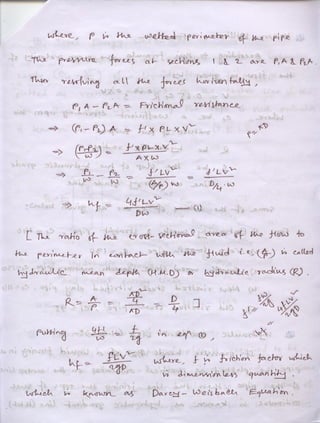 where, P is the wetted perimeter of the pipe
The pressure forces at sections 1 & 2 are P₁A & P₂A.
Then resolving all the forces horizontally,
P₁A - P₂A = Frictional resistance
⇒ (P₁-P₂) A = f' x PL x V²
P=πD
⇒ (P₁-P₂)/w = f' x PL x V²/(A x w)
⇒ P₁/w - P₂/w = f'LV²/((A/P) w) = f'LV²/(D/4 . w)
⇒ hf = 4f'LV²/(Dw) — (1)
[ The ratio of the cross-sectional area of the flow to
the perimeter in contact with the fluid i.e. (A/P) is called
hydraulic mean depth (H.M.D) or hydraulic radius (R).
R = A/P = (πD²/4)/(πD) = D/4 ]
Putting 4f'/w = f/2g in eqn (1),
hf = fLV²/2gD where, f is friction factor which
is dimensionless quantity
which is known as Darcy-Weisbach Equation.
f' = fw/2g
hf = 4fLV²/2gD